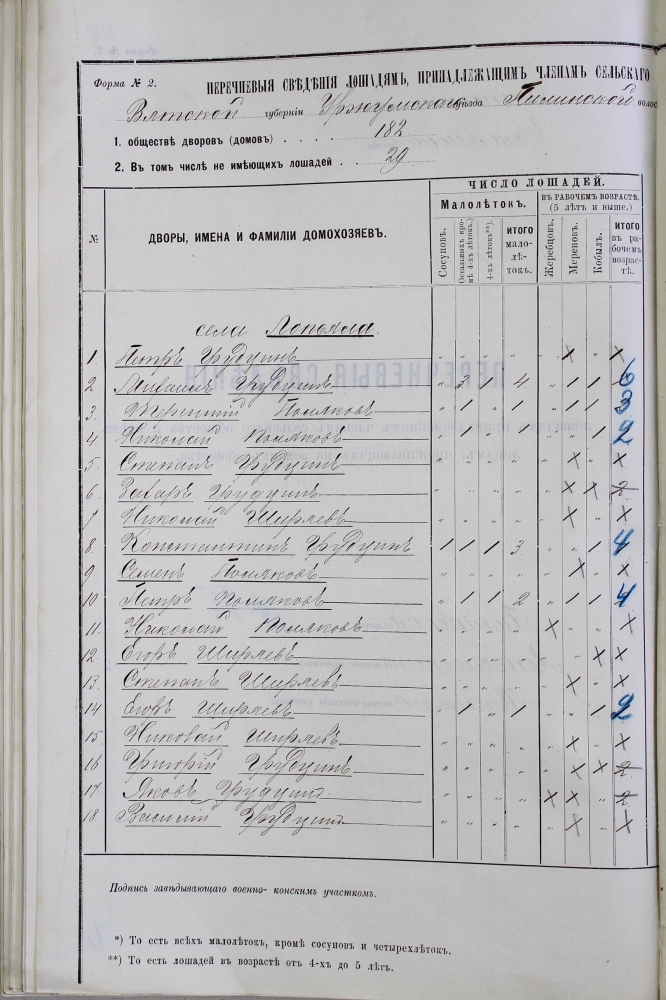 Форма № 2.
ПЕРЕЧНЕВЫЯ СВѢДѢНІЯ ЛОШАДЯМЪ, ПРИНАДЛЕЖАЩИМЪ ЧЛЕНАМЪ СЕЛЬСКАГО
Вятской губерніи Уржумскаго уѣзда Пилинской волос
1. обществѣ дворовъ (домовъ) . . . . 182
2. Въ томъ числѣ не имѣющихъ лошадей . . 29
№
ДВОРЫ, ИМЕНА И ФАМИЛІИ ДОМОХОЗЯЕВЪ.
ЧИСЛО ЛОШАДЕЙ.
Малолѣтокъ.
ВЪ РАБОЧЕМЪ ВОЗРАСТѢ. (5 ЛѢТЪ И ВЫШЕ.)
Сосуновъ.
Остальныхъ кромѣ 4-хъ лѣтокъ.*)
4-хъ лѣтокъ**).
ИТОГО мало-лѣ-токъ.
Жеребцовъ.
Мереновъ.
Кобылъ.
ИТОГО въ рабочемъ возрастѣ.
села Лопъяла.
1 Петръ " " " " " × " ×
2 " 3 1 4 " 1 1 6
3. Терентій Поляковъ " 1 " 1 " 1 1 3
4 Николай Поляковъ " " " " " 1 2
5. Степанъ " " " " " × " ×
6. Захаръ " " " " " × × 2
7 Николай Ширяевъ " " " " " × " ×
8. Константинъ 1 1 1 3 " " 1 4
9 Семенъ Поляковъ " " " " " × " ×
10 Петръ Поляковъ " 1 1 2 " 1 1 4
11. Николай Поляковъ " " " " × " " ×
12 Егоръ Ширяевъ " " " " " " × ×
13. Степанъ Ширяевъ " " " " " × " ×
14 Егоръ Ширяевъ " 1 " 1 " " 1 2
15. Николай Ширяевъ " " " " " × " ×
16 Григорій " " " " " × × 2
17. Яковъ " " " " × × " 2
18. Василій " " " " " × " ×
Подпись завѣдывающаго военно-конскимъ участкомъ.
*) То есть всѣхъ малолѣтокъ, кромѣ сосуновъ и четырехлѣтокъ.
**) То есть лошадей въ возрастѣ отъ 4-хъ до 5 лѣтъ.